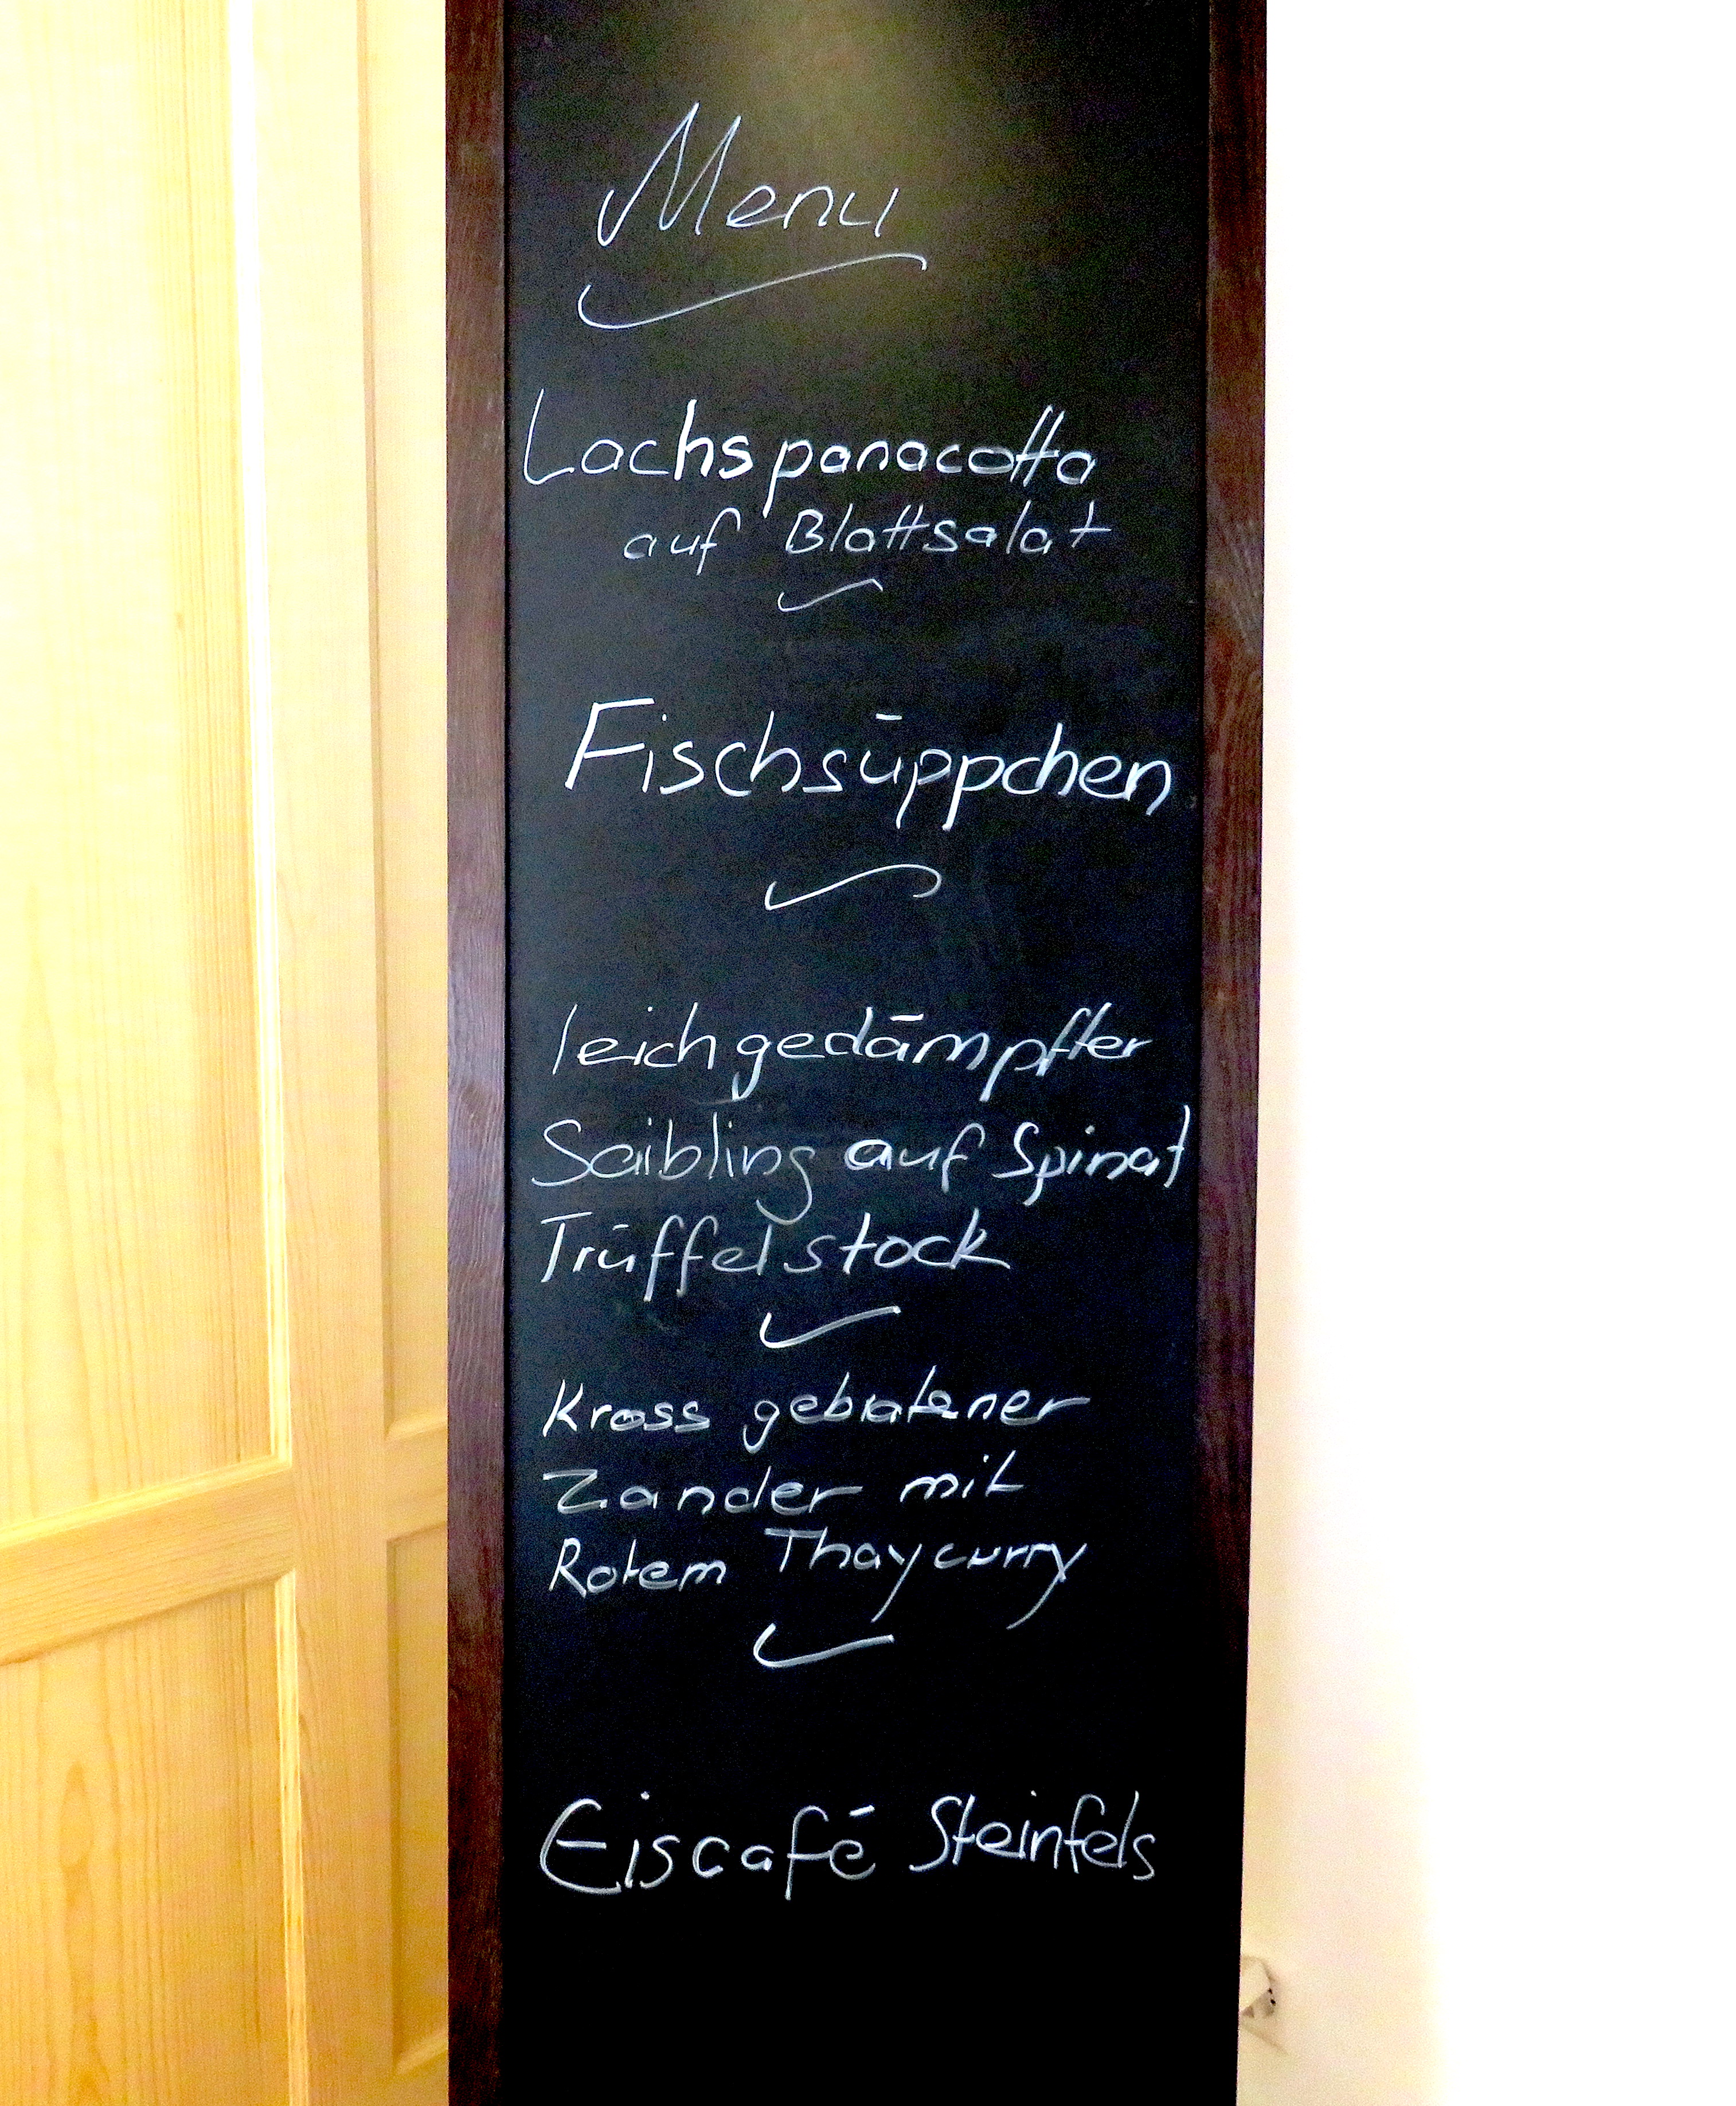 Menu
Lachspanacotta
auf Blattsalat
Fischsüppchen
leichgedämpfter
Saibling auf Spinat
Trüffelstock
Kross gebratener
Zander mit
Rotem Thaycurry
Eiscafé Steinfels